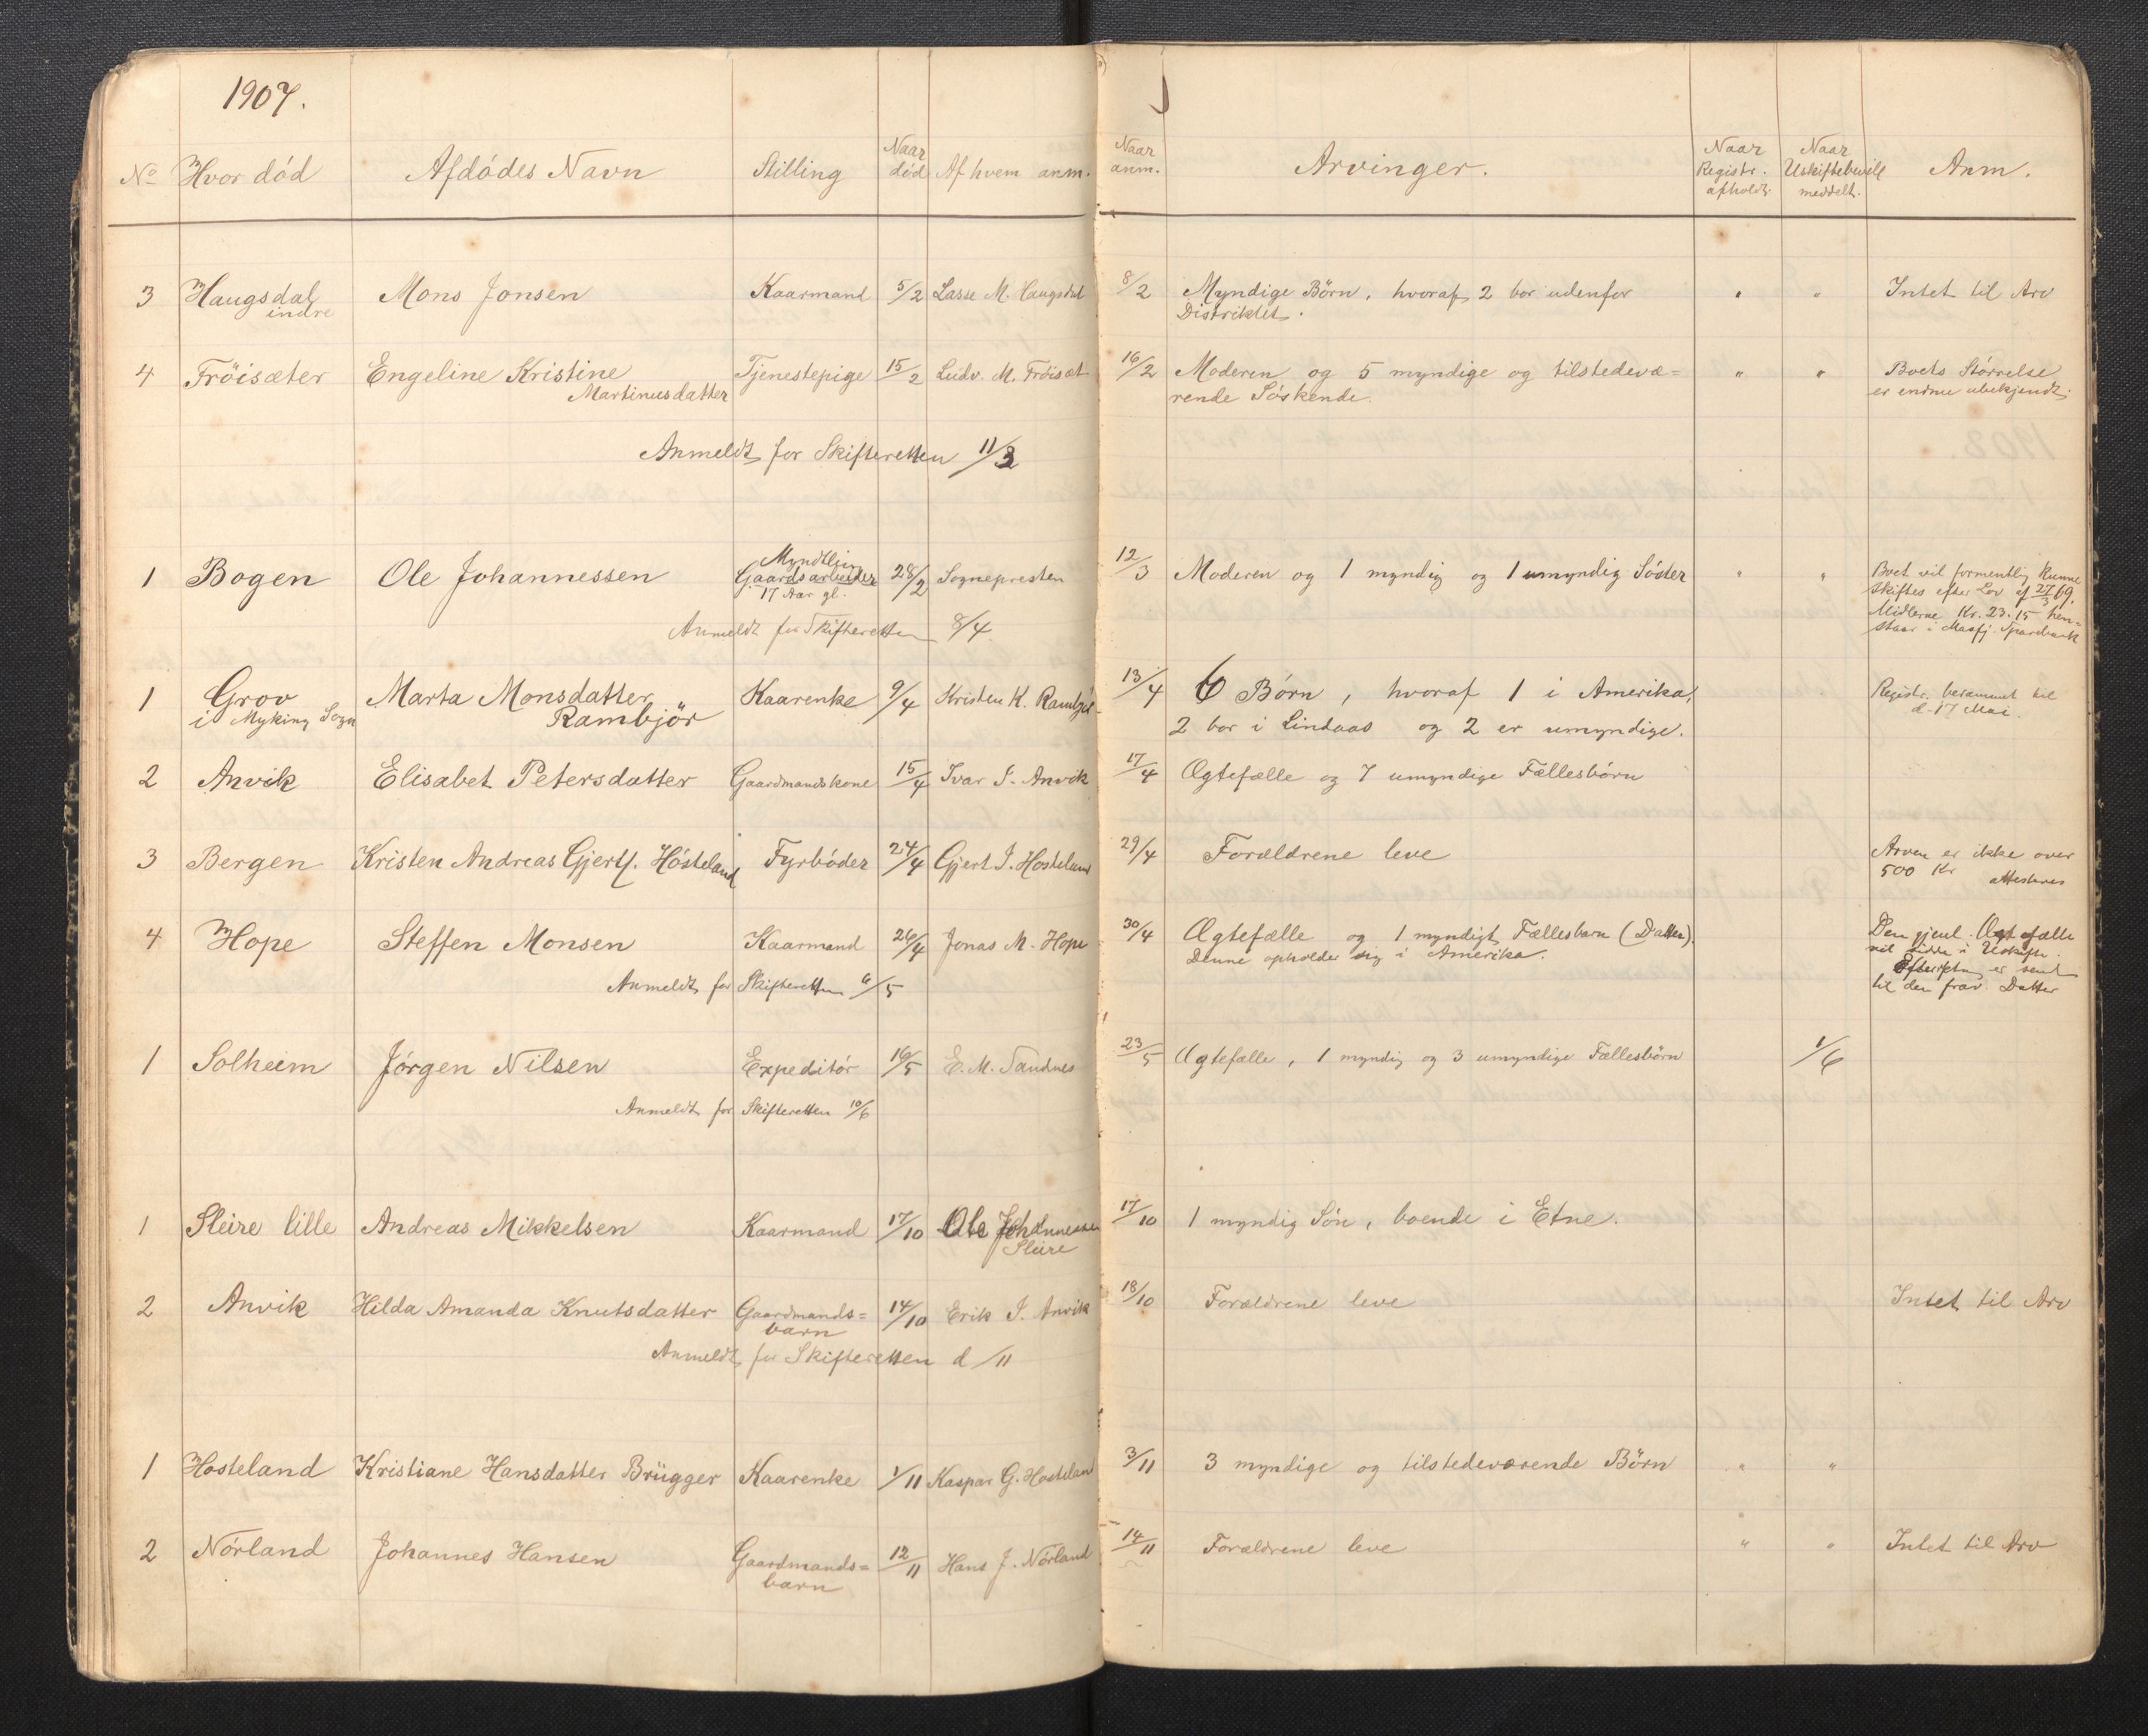 1907.
No Hvor död Afdödes Navn Stilling Naar död Af hvem anm. Naar anm. Arvinger. Naar Registr. afholdt. Naar Uskiftebevill. meddelt. Anm.
3 Haugsdal Mons Jonsen Kaarmand 5/2 Lasse M. Haugsdal 8/2 Myndige Börn, hvoraf 2 bor udenfor " " Intet til Arv
indre Distriktet.
4 Fröisæter Engeline Kristine Tjenestepige 15/2 Ludv. M. Fröisæt 16/2 Moderen og 5 myndige og tilstedevæ= " " Boets Störrelse
Martinusdatter rende Söskende. er endnu ubekjendt.
Anmeldt for Skifteretten 11/3
1 Bogen Ole Johannessen Myndling Gaardsarbeider 28/2 Sognepresten 12/3 Moderen og 1 myndig og 1 umyndig Söster " " Boet vil formentlig kunne
17 Aar gl. skiftes efter Lov af 27/3 69.
Anmeldt for Skifteretten 8/4 Midlerne Kr. 23.15 hen=
staar i Masfj. Sparebank
1 Grov Marta Monsdatter Kaarenke 9/4 Kristen K. Rambjör 13/4 6 Börn, hvoraf 1 i Amerika, Registr. berammet til
i Myking Sogn Rambjör 2 bor i Lindaas og 2 er umyndige. d. 17 Mai.
2 Anvik Elisabet Petersdatter Gaardmandskone 15/4 Ivar I. Anvik 17/4 Ægtefælle og 7 umyndige Fællesbörn
3 Bergen Kristen Andreas Gjerts. Hösteland Fyrböder 24/4 Gjert I. Hosteland 29/4 Forældrene leve Arven er ikke over
500 Kr attesteres
4 Hope Steffen Monsen Kaarmand 26/4 Jonas M. Hope 30/4 Ægtefælle og 1 myndigt Fællesbarn (Datter). Den gjenl. Ægtefælle
Denne opholder sig i Amerika. vil sidde i Uskifte.
Anmeldt for Skifteretten 6/5 er sendt
til den frav. Datter
1 Solheim Jörgen Nilsen Expeditör 16/5 E. M. Sandnes 23/5 Ægtefælle, 1 myndig og 3 umyndige Fællesbörn 1/6
Anmeldt for Skifteretten 10/6
1 Sleire lille Andreas Mikkelsen Kaarmand 17/10 Ole Johannessen 17/10 1 myndig Sön, boende i Etne.
Sleire
2 Anvik Hilda Amanda Knutsdatter Gaardmands= 14/10 Erik I. Anvik 18/10 Forældrene leve Intet til Arv
barn
Anmeldt for Skifteretten d /11
1 Hosteland Kristiane Hansdatter Brügger Kaarenke 1/11 Kaspar G. Hosteland 3/11 3 myndige og tilstedeværende Börn " "
2 Nörland Johannes Hansen Gaardmands= 12/11 Hans J. Nörland 14/11 Forældrene leve " " Intet til Arv
barn